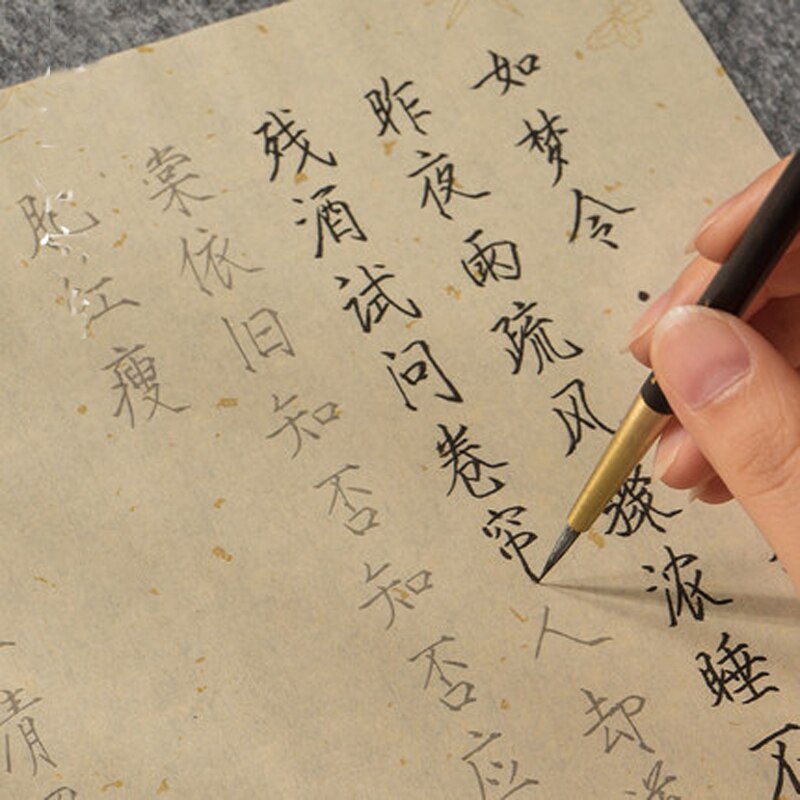 如梦令·
昨夜雨疏风骤浓睡不
残酒试问卷帘人却道
棠依旧知否知否应
肥红瘦
清